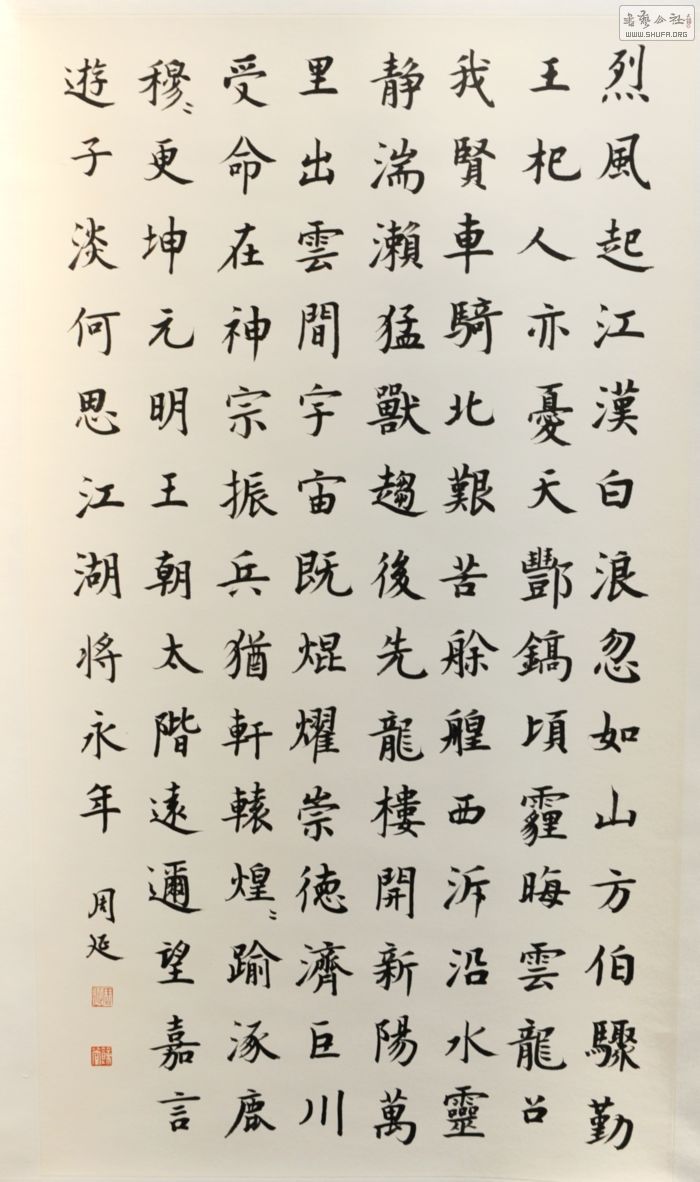 烈風起江漢白浪忽如山方伯驟勤
王杞人亦憂天酆鎬頃霾晦雲龍召
我賢車騎北艱苦艅艎西泝沿水靈
静湍瀨猛獸趨後先龍樓開新陽萬
里出雲間宇宙既焜燿崇徳濟巨川
受命在神宗振兵猶軒轅煌〻踰涿鹿
穆〻更坤元明王朝太階遠邇望嘉言
遊子淡何思江湖將永年
周延
書藝公社
WWW.SHUFA.ORG